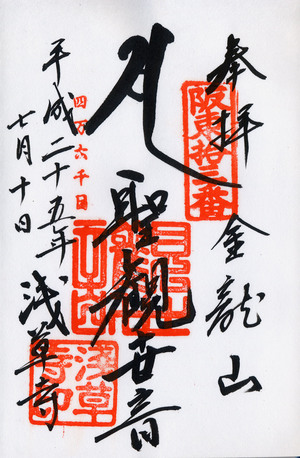 奉拝
坂東拾三番
金龍山
聖観世音
四万六千日
平成二十五年
七月十日
浅草寺
浅草寺印